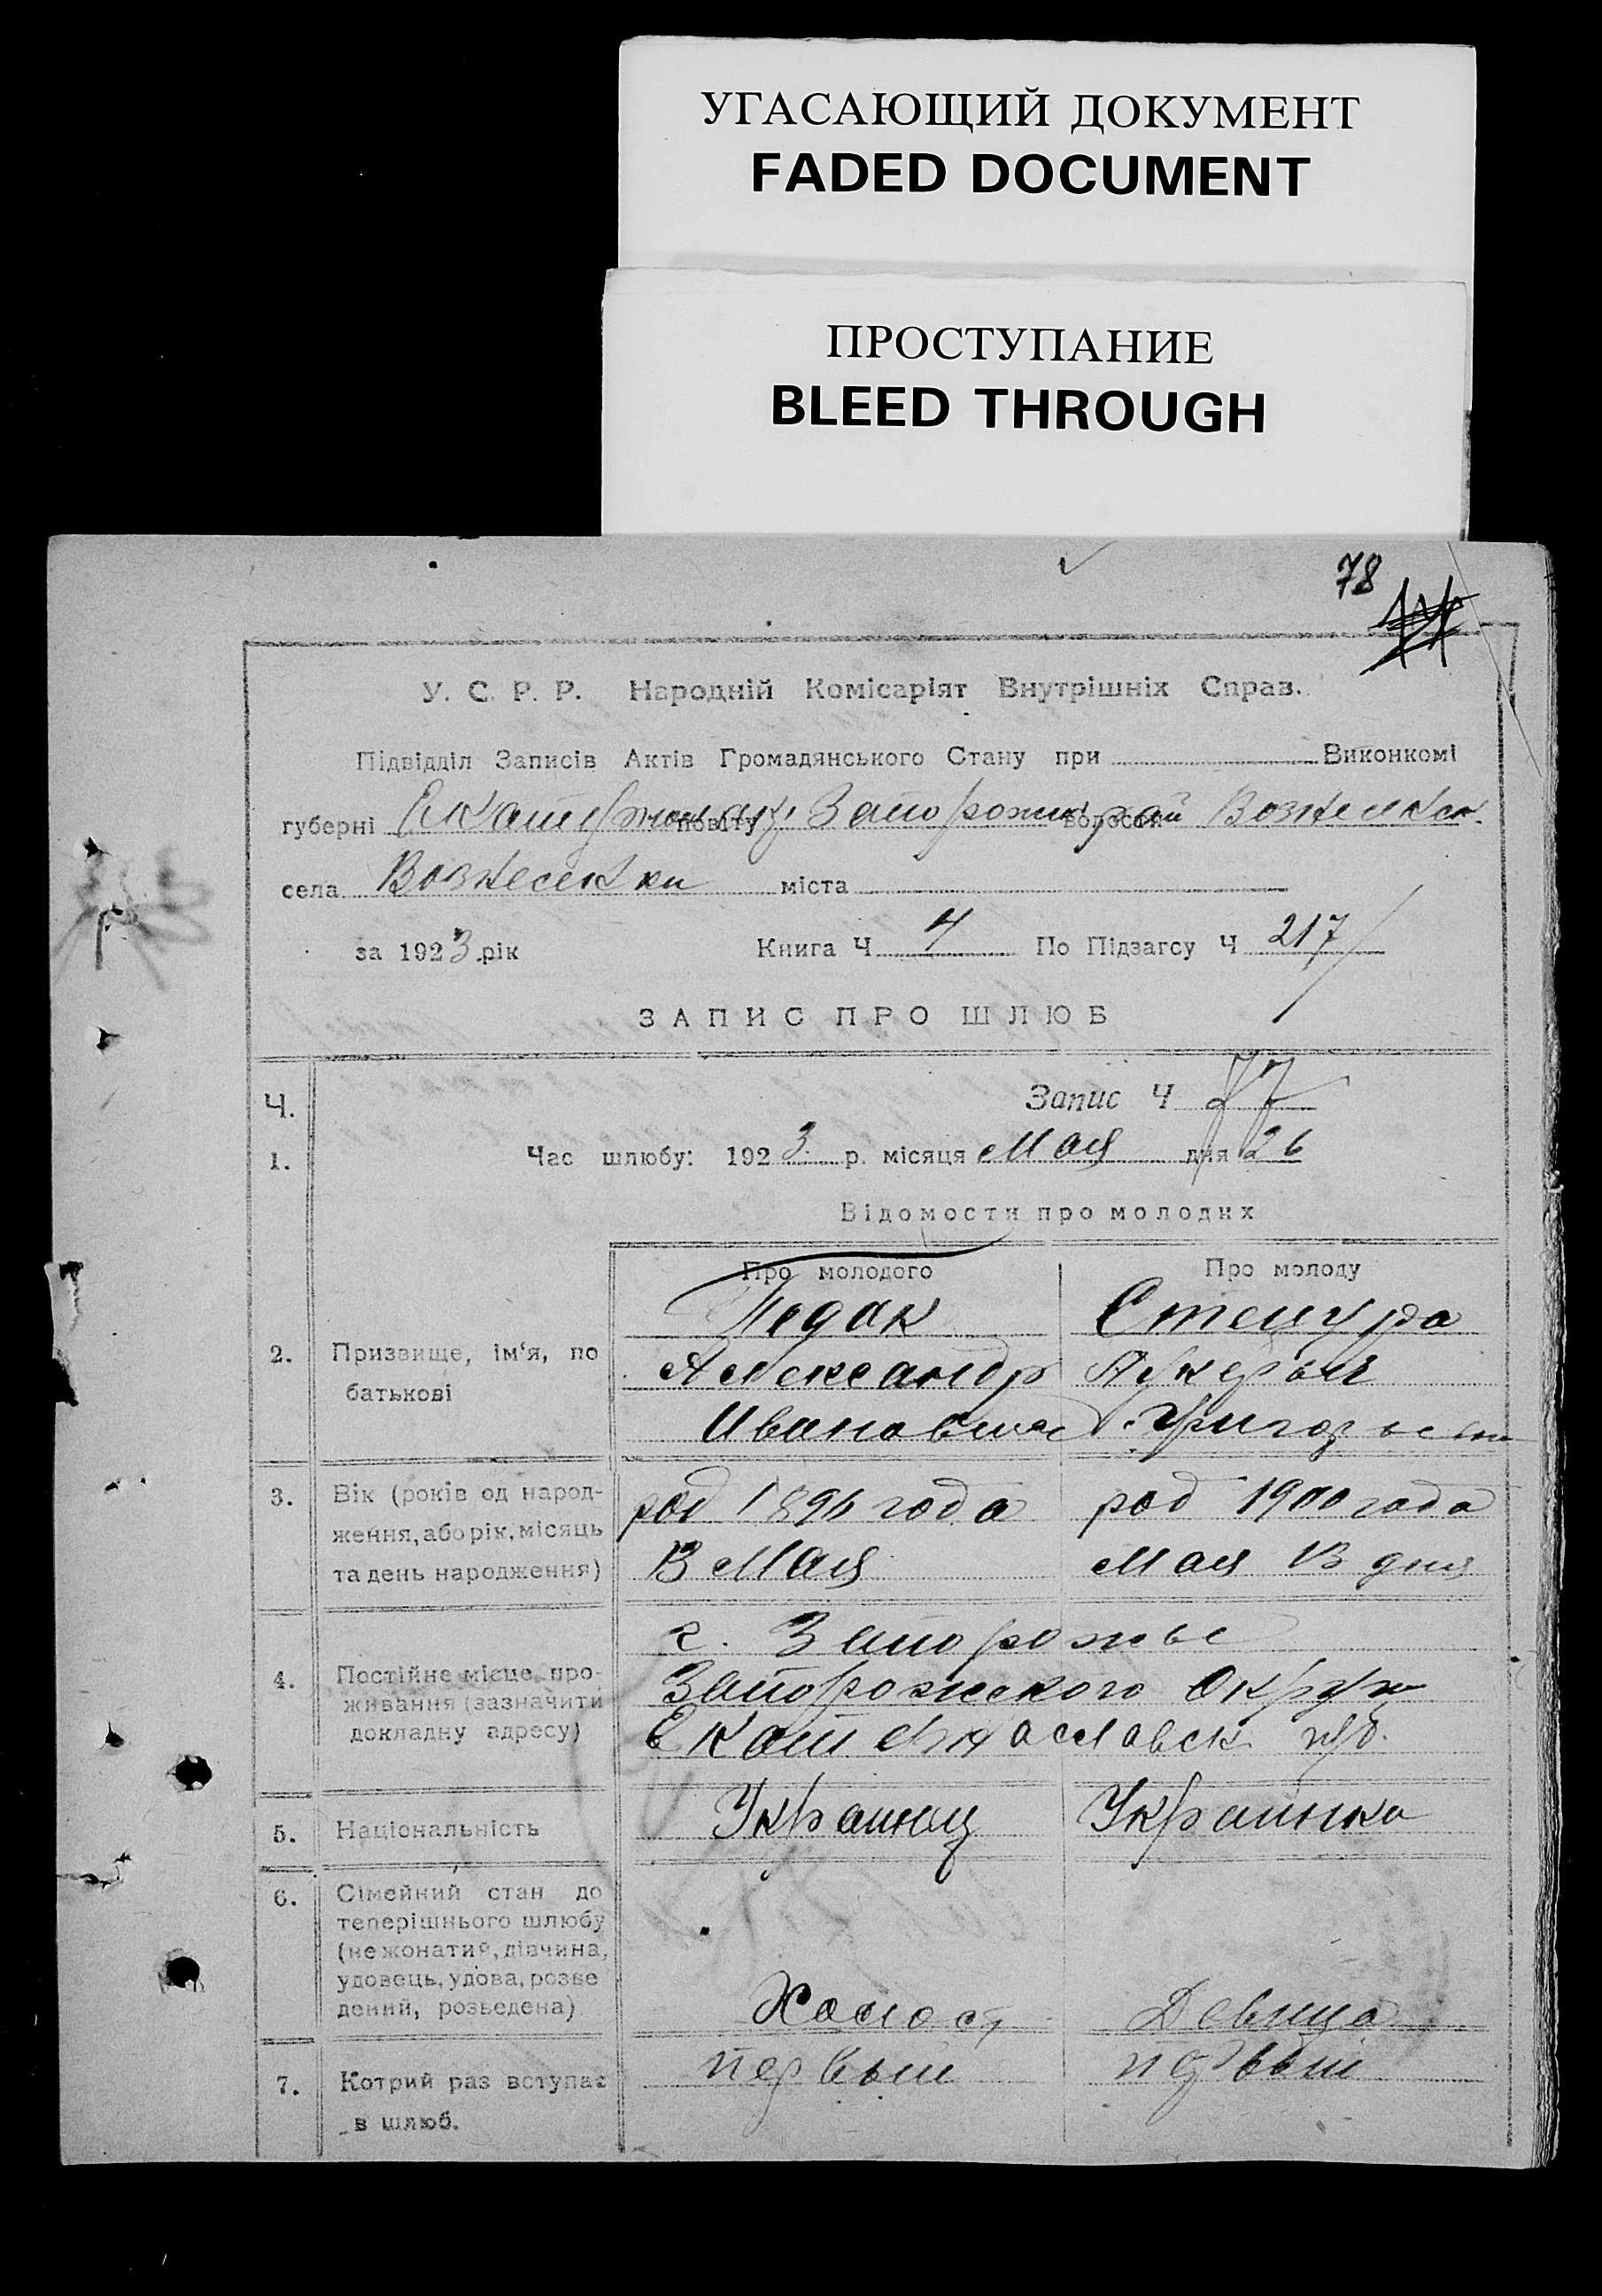 УГАСАЮЩИЙ ДОКУМЕНТ
FADED DOCUMENT
ПРОСТУПАНИЕ
BLEED THROUGH
78
У. С. Р. Р. Народній Комісаріят Внутрішніх Справ.
Підвідділ Записів Актів Громадянського Стану при Виконкомі
губерні повіту волости
села Вознесенки міста
за 1923 рік Книга Ч 4 По Підзагсу Ч 217
ЗАПИС ПРО ШЛЮБ
Ч. Запис Ч 77
1. Час шлюбу: 1923 р. місяця Мая дня 26
Відомости про молодих
Про молодого Про молоду
Педак Стецура
2. Призвище, ім'я, по Александр Лукерья
батькові Иванович Григорьевн
3. Вік (років од народ- род 1896 года род 1900 года
ження, або рік, місяць
та день народження) 13 Мая Мая 13 дня
г. Запорожье
4. Постійне місце про- Запорожского Округ
живання (зазначити
докладну адресу) Екатеринославск губ.
5. Національність Украинец Украинка
6. Сімейний стан до
теперішнього шлюбу
(не жонатий, дівчина,
удовець, удова, розве
дений, розведена) Холост Девица
7. Котрий раз вступає первый первый
в шлюб.